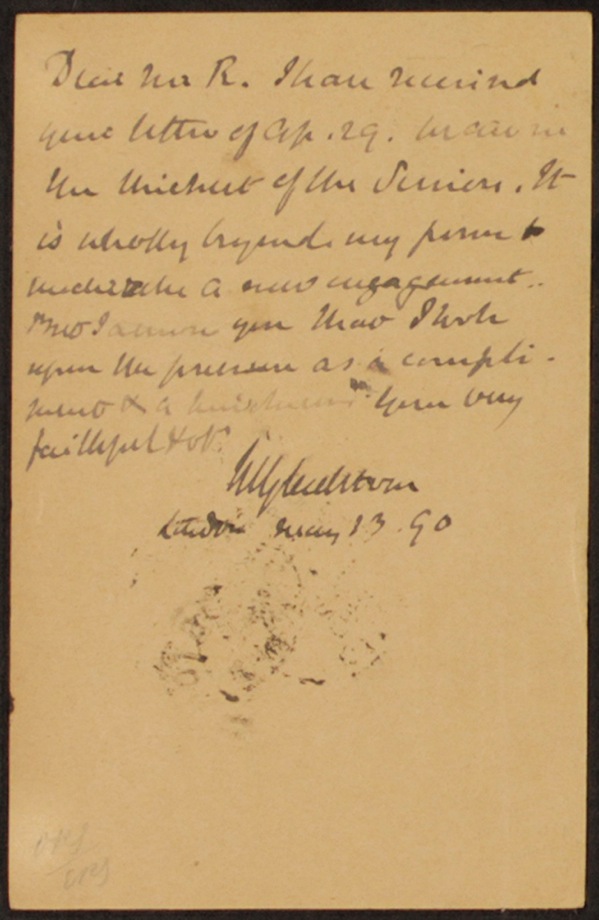 Dear Mr R. I have received
your letter of Ap. 29. We are in
the thickest of the Session. It
is wholly beyond my power to
undertake a new engagement.
But I assure you that I look
upon the proposal as a compli-
ment & a kindness. Your very
faithful &
WEGladstone
London May 13. 90